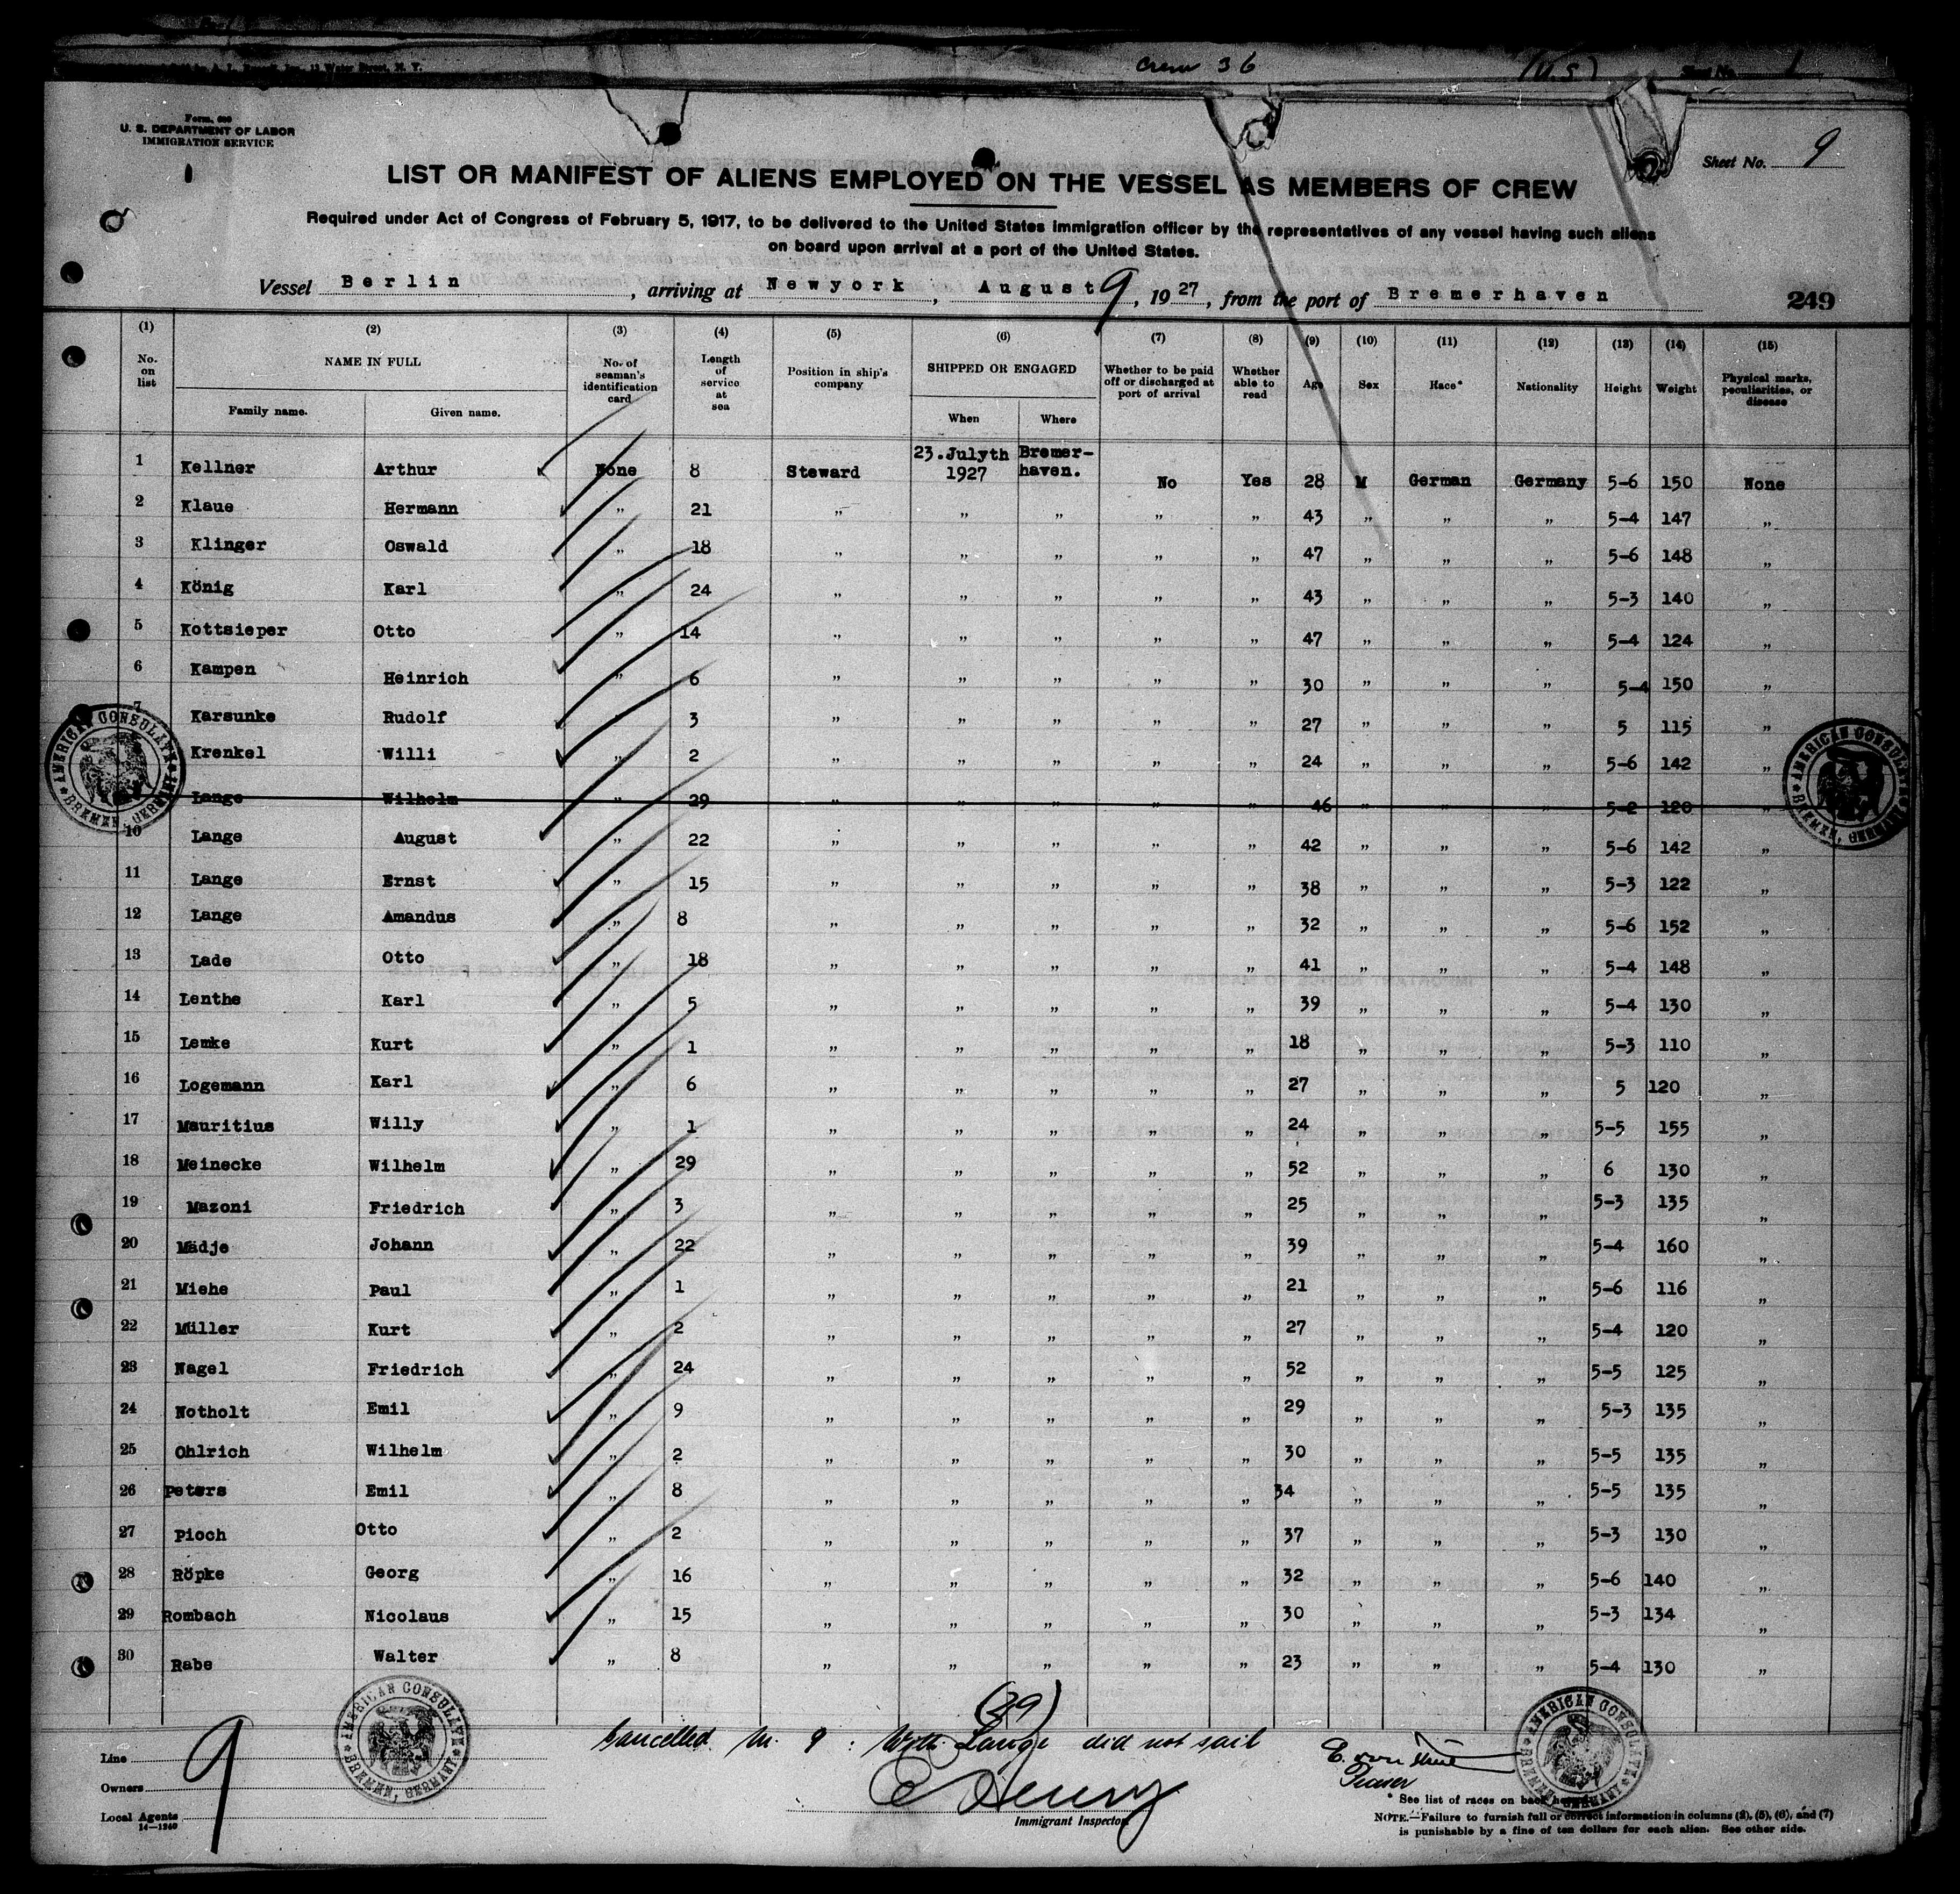 Crew 36 (U.S) Sheet No. 1
Form. 689
U. S. DEPARTMENT OF LABOR
IMMIGRATION SERVICE
Sheet No. 9
LIST OR MANIFEST OF ALIENS EMPLOYED ON THE VESSEL AS MEMBERS OF CREW
Required under Act of Congress of February 5, 1917, to be delivered to the United States immigration officer by the representatives of any vessel having such aliens
on board upon arrival at a port of the United States.
Vessel Berlin, arriving at Newyork, August 9, 1927, from the port of Bremerhaven
249
(1) (2) (3) (4) (5) (6) (7) (8) (9) (10) (11) (12) (13) (14) (15)
No. on list NAME IN FULL Family name. Given name. No. of seaman's identification card Length of service at sea Position in ship's company SHIPPED OR ENGAGED When Where Whether to be paid off or discharged at port of arrival Whether able to read Age Sex Race* Nationality Height Weight Physical marks, peculiarities, or disease
1 Kellner Arthur None 8 Steward 23.Julyth 1927 Bremer-haven. No Yes 28 M German Germany 5-6 150 None
2 Klaue Hermann „ 21 „ „ „ „ „ 43 „ „ „ 5-4 147 „
3 Klinger Oswald „ 18 „ „ „ „ „ 47 „ „ „ 5-6 148 „
4 König Karl „ 24 „ „ „ „ „ 43 „ „ „ 5-3 140 „
5 Kottsieper Otto „ 14 „ „ „ „ „ 47 „ „ „ 5-4 124 „
6 Kampen Heinrich „ 6 „ „ „ „ „ 30 „ „ „ 5-4 150 „
7 Karsunke Rudolf „ 3 „ „ „ „ „ 27 „ „ „ 5 115 „
Krenkel Willi „ 2 „ „ „ „ „ 24 „ „ „ 5-6 142 „
Lange Wilhelm „ 29 „ „ „ „ „ 46 „ „ „ 5-2 120 „
10 Lange August „ 22 „ „ „ „ „ 42 „ „ „ 5-6 142 „
11 Lange Ernst „ 15 „ „ „ „ „ 38 „ „ „ 5-3 122 „
12 Lange Amandus „ 8 „ „ „ „ „ 32 „ „ „ 5-6 152 „
13 Lade Otto „ 18 „ „ „ „ „ 41 „ „ „ 5-4 148 „
14 Lenthe Karl „ 5 „ „ „ „ „ 39 „ „ „ 5-4 130 „
15 Lemke Kurt „ 1 „ „ „ „ „ 18 „ „ „ 5-3 110 „
16 Logemann Karl „ 6 „ „ „ „ „ 27 „ „ „ 5 120 „
17 Mauritius Willy „ 1 „ „ „ „ „ 24 „ „ „ 5-5 155 „
18 Meinecke Wilhelm „ 29 „ „ „ „ „ 52 „ „ „ 6 130 „
19 Mazoni Friedrich „ 3 „ „ „ „ „ 25 „ „ „ 5-3 135 „
20 Mädje Johann „ 22 „ „ „ „ „ 39 „ „ „ 5-4 160 „
21 Miehe Paul „ 1 „ „ „ „ „ 21 „ „ „ 5-6 116 „
22 Müller Kurt „ 2 „ „ „ „ „ 27 „ „ „ 5-4 120 „
23 Nagel Friedrich „ 24 „ „ „ „ „ 52 „ „ „ 5-5 125 „
24 Notholt Emil „ 9 „ „ „ „ „ 29 „ „ „ 5-3 135 „
25 Ohlrich Wilhelm „ 2 „ „ „ „ „ 30 „ „ „ 5-5 135 „
26 Peters Emil „ 8 „ „ „ „ „ 34 „ „ „ 5-5 135 „
27 Pioch Otto „ 2 „ „ „ „ „ 37 „ „ „ 5-3 130 „
28 Röpke Georg „ 16 „ „ „ „ „ 32 „ „ „ 5-6 140 „
29 Rombach Nicolaus „ 15 „ „ „ „ „ 30 „ „ „ 5-3 134 „
30 Rabe Walter „ 8 „ „ „ „ „ 23 „ „ „ 5-4 130 „
AMERICAN CONSULATE BREMEN, GERMANY
AMERICAN CONSULATE BREMEN, GERMANY
AMERICAN CONSULATE BREMEN, GERMANY
AMERICAN CONSULATE BREMEN, GERMANY
(29)
Cancelled Nr. 9 : Wilh. Lange did not sail
Line
Owners
Local Agents
14—1240
9
Immigrant Inspector.
* See list of races on back hereof.
NOTE.—Failure to furnish full or correct information in columns (2), (5), (6), and (7)
is punishable by a fine of ten dollars for each alien. See other side.